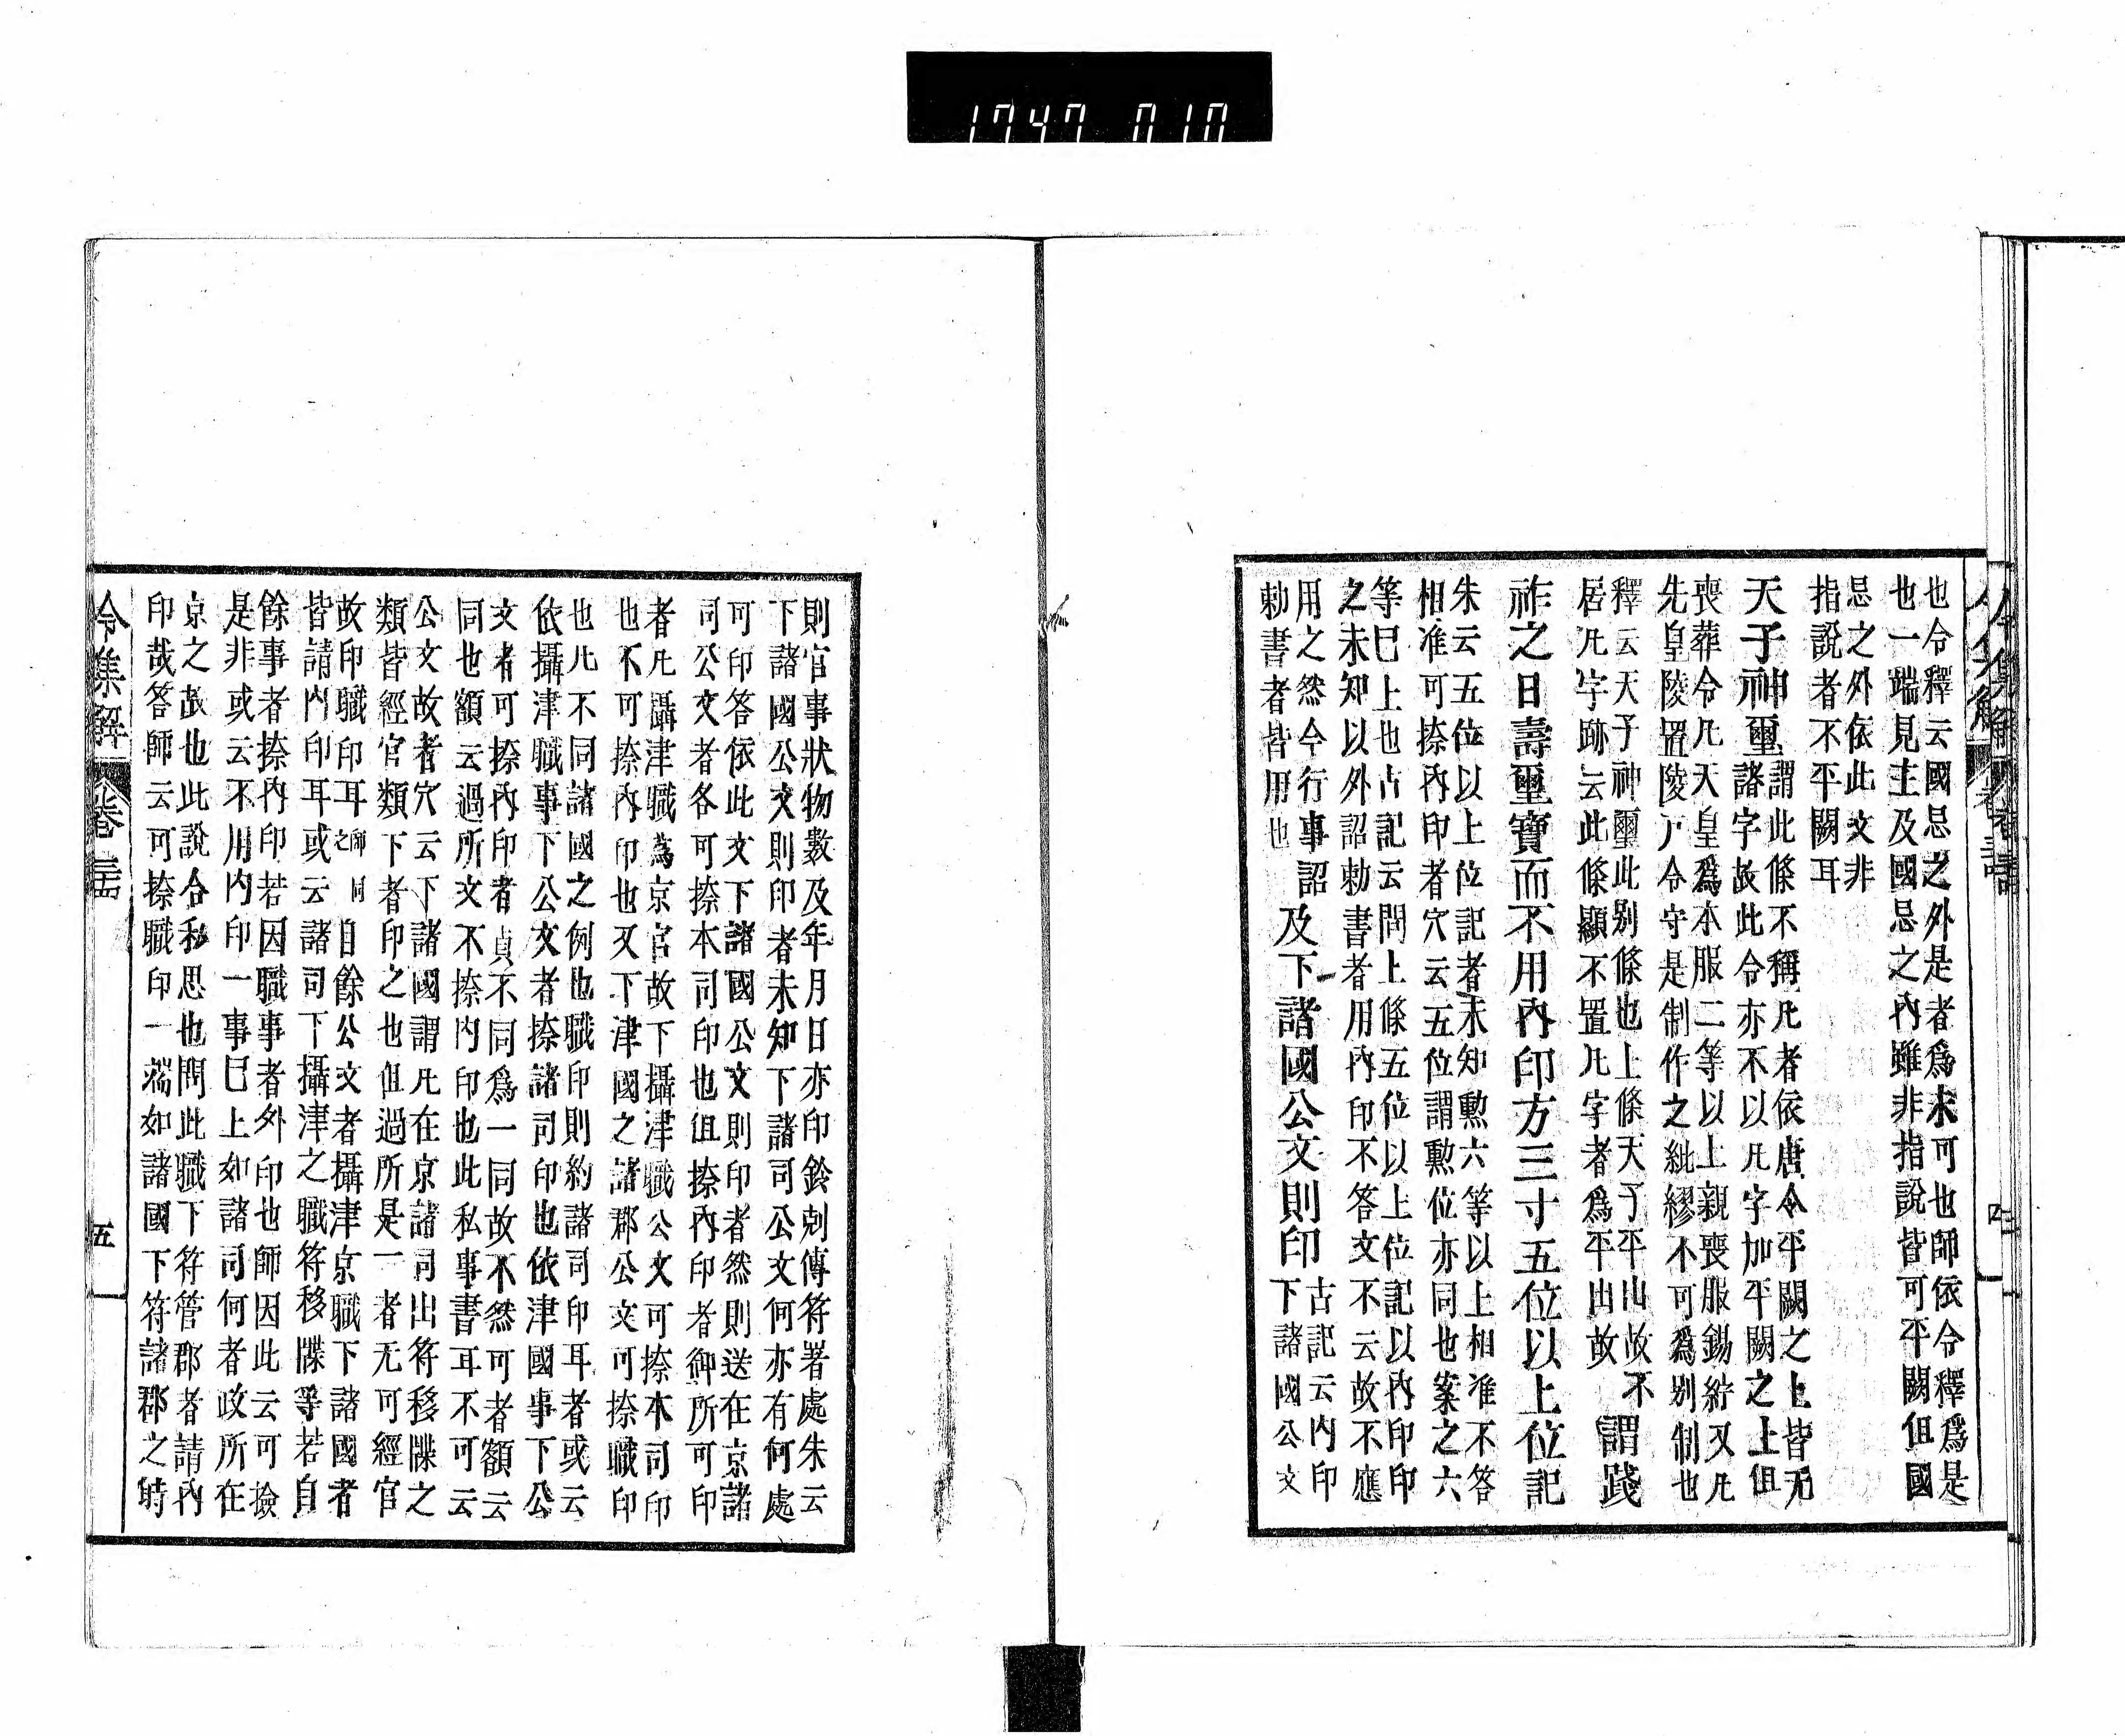 1747 010
也令釋云國忌之外是者爲未可也師依令釋爲是
也一端見主及國忌之內雖非指說皆可平闕但國
忌之外依此文非
指說者不平闕耳
天子神璽
謂此條不稱凡者依唐令平闕之上皆无
諸字故此令亦不以凡字加平闕之上但
喪葬令凡天皇爲本服二等以上親喪服錫紵又凡
先皇陵置陵戸令守是制作之紕繆不可爲別制也
釋云天子神璽此別條也上條天子平出故不
居凡字跡云此條顯不置凡字者爲平出故
謂踐
祚之日壽璽寶而不用內印方三寸五位以上位記
朱云五位以上位記者未知勲六等以上相准不答
相准可捺內印者穴云五位謂勲位亦同也案之六
等巳上也古記云問上條五位以上位記以內印印
之未知以外詔勅書者用內印不答文不云故不應
用之然今行事詔
勅書者皆用也
及下諸國公文則印
古記云內印
下諸國公文
令集解 卷三十四 四
則官事狀物數及年月日亦印鈴剋傳符署處朱云
下諸國公文則印者未知下諸司公文何亦有何處
可印答依此文下諸國公文則印者然則送在京諸
司公文者各可捺本司印也但捺內印者御所可印
者凡攝津職爲京官故下攝津職公文可捺本司印
也不可捺內印也又下津國之諸郡公文可捺職印
也凡不同諸國之例也職印則約諸司印耳者或云
依攝津職事下公文者捺諸司印也依津國事下公
文者可捺內印者貞不同爲一同故不然可者額云
同也額云過所文不捺內印也此私事書耳不可云
公文故者穴云下諸國謂凡在京諸司出符移牒之
類皆經官類下者印之也但過所是一者无可經官
故印職印耳師同之自餘公文者攝津京職下諸國者
皆請內印耳或云諸司下攝津之職符移牒等若自
餘事者捺內印若因職事者外印也師因此云可撿
是非或云不用內印一事巳上如諸司何者政所在
京之故也此說合私思也問此職下符管郡者請內
印哉答師云可捺職印一端如諸國下符諸郡之時
令集解 卷三十四 五